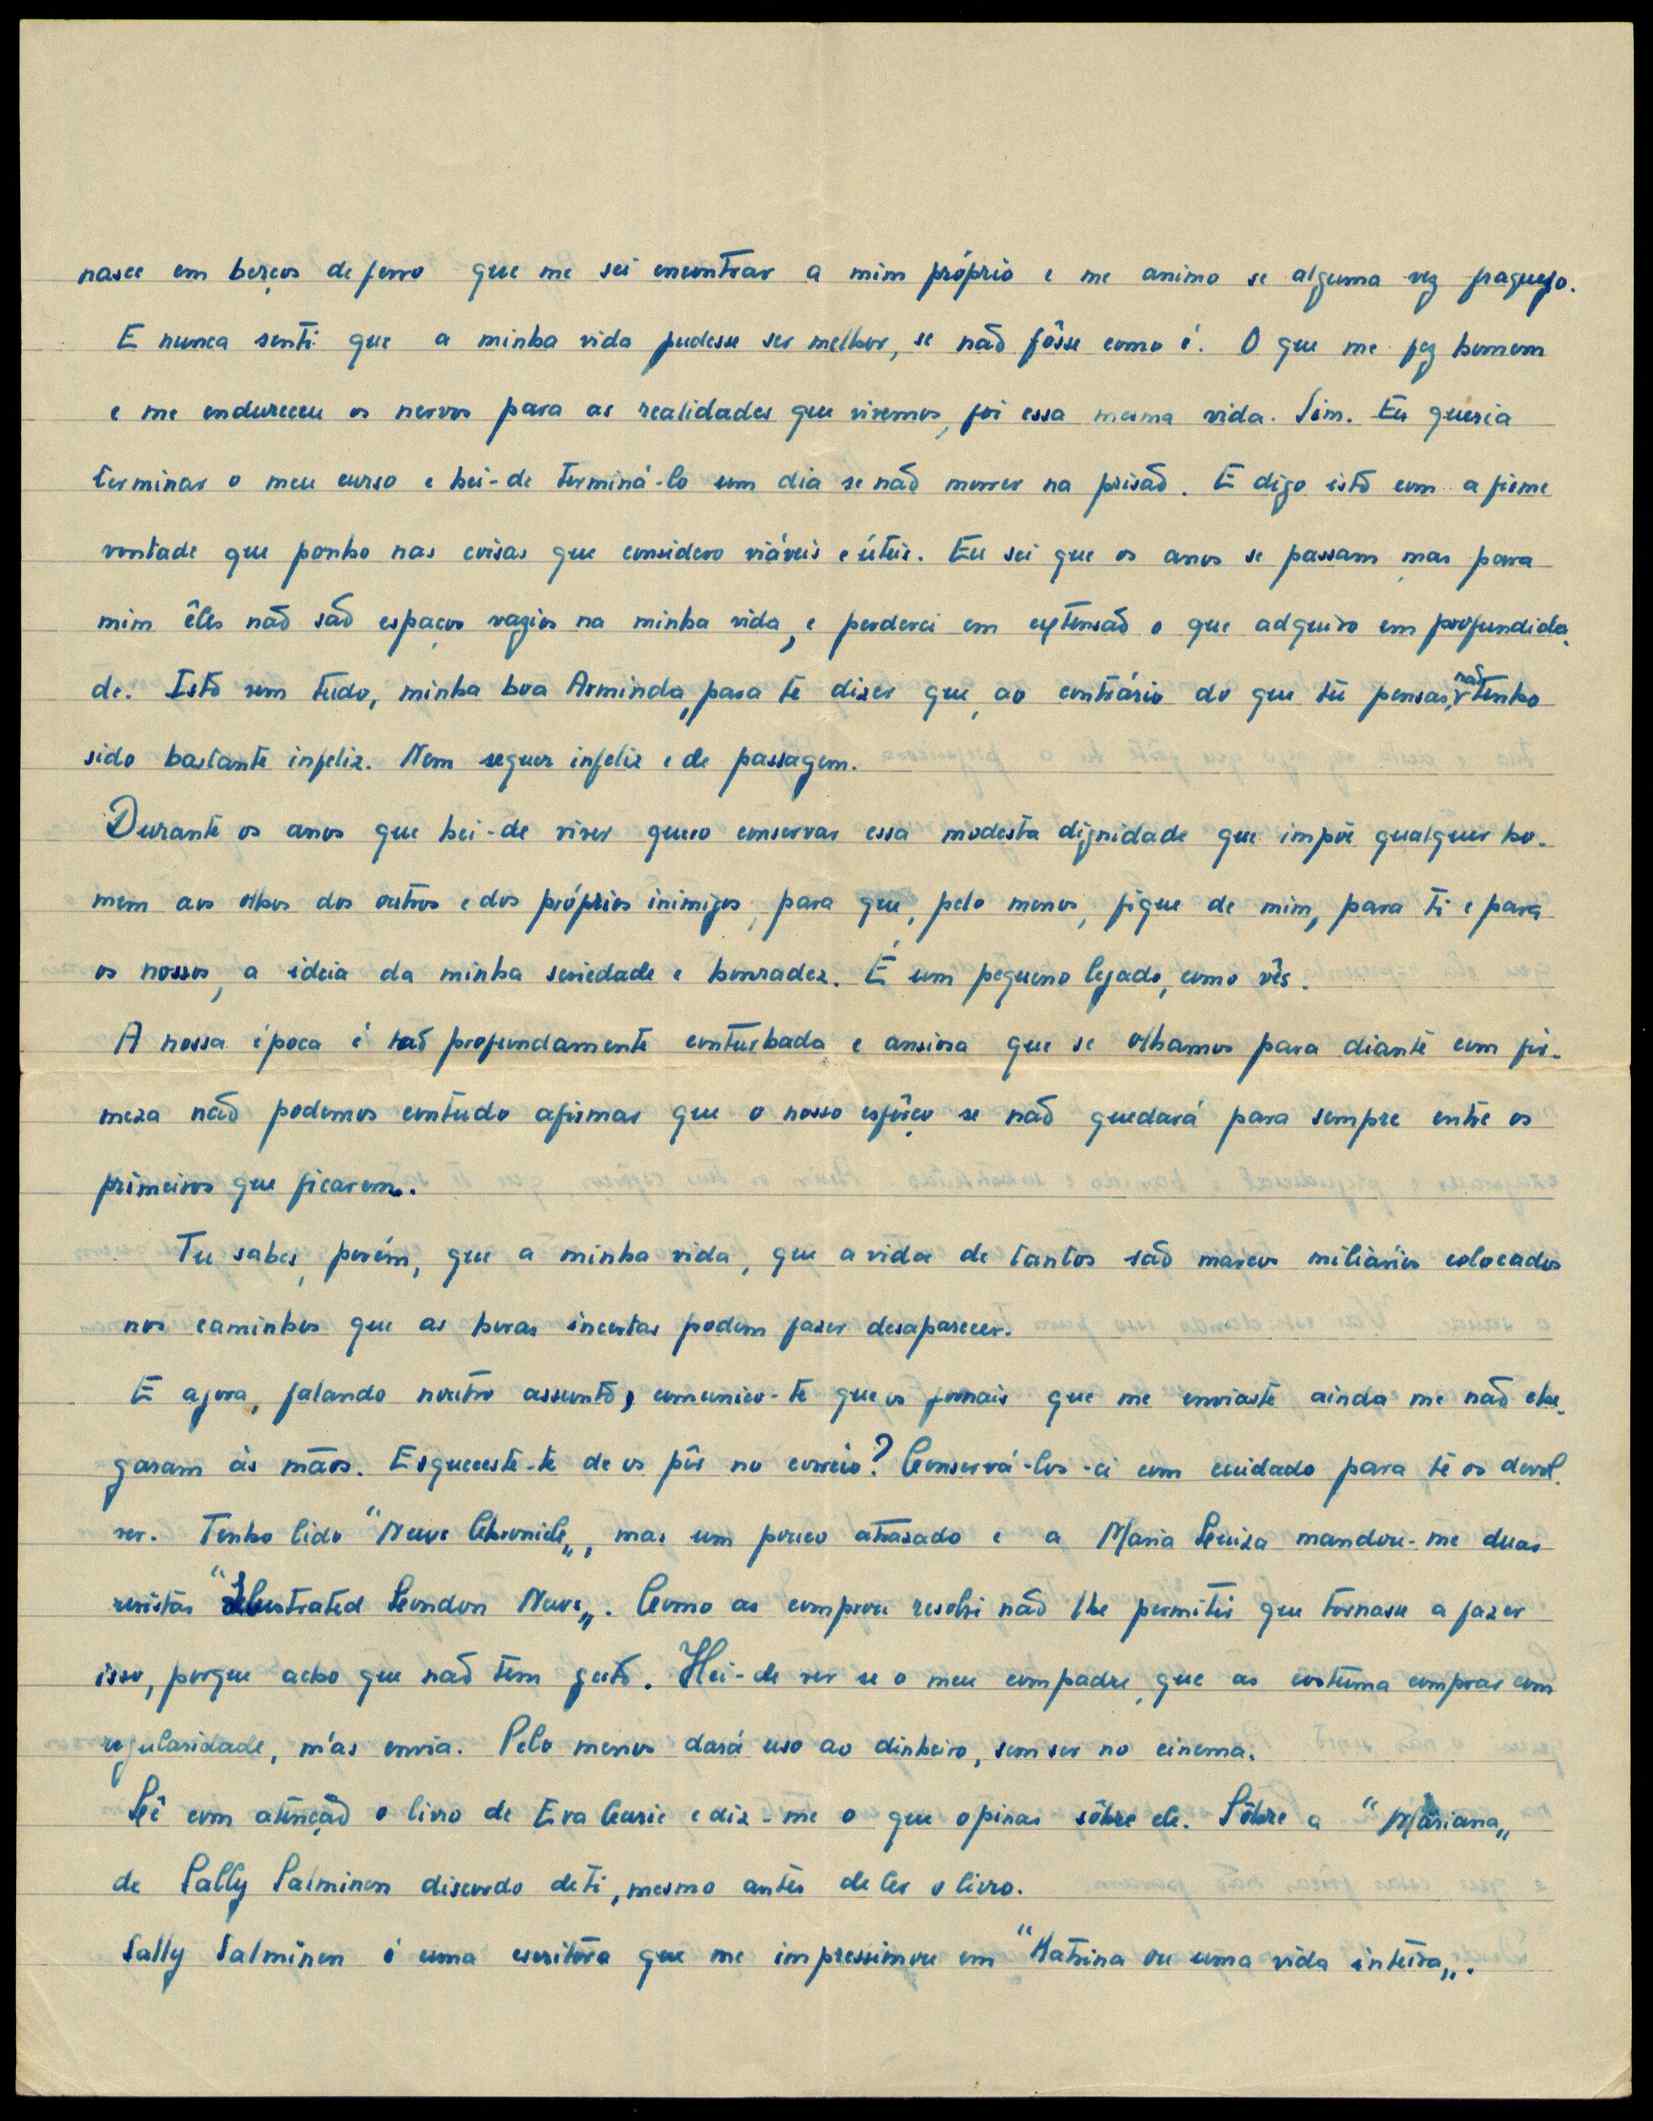 nasce em berços de ferro que me sei encontrar a mim próprio e me animo se alguma vez fraquejo.
E nunca senti que a minha vida pudesse ser melhor, se não fôsse como é. O que me fez homem
e me endureceu os nervos para as realidades que vivemos, foi essa mesma vida. Sim. Eu queria
terminar o meu curso e hei-de terminá-lo um dia se não morrer na prisão. E digo isto com a firme
vontade que ponho nas coisas que considero viáveis e úteis. Eu sei que os anos se passam mas para
mim êles não são espaços vazios na minha vida, e perderei em extensão o que adquiro em profundida-
de. Isto vem tudo, minha boa Arminda, para te dizer que, ao contrário do que tu pensas, não tenho
sido bastante infeliz. Nem sequer infeliz e de passagem.
Durante os anos que hei-de viver quero conservar essa modesta dignidade que impõe qualquer ho-
mem aos olhos dos outros e dos próprios inimigos, para que, pelo menos, fique de mim, para ti e para
os nossos, a ideia da minha seriedade e honradez. É um pequeno legado, como vês.
A nossa época é tão profundamente conturbada e ansiosa que se olhamos para diante com fir-
meza não podemos contudo afirmar que o nosso esfôrço se não quedará para sempre entre os
primeiros que ficarem.
Tu sabes, porém, que a minha vida, que a vida de tantos são marcos miliários colocados
nos caminhos que as horas incertas podem fazer desaparecer.
E agora, falando noutro assunto, comunico-te que os jornais que me enviaste ainda me não che-
garam às mãos. Esqueceste-te de os pôr no correio? Conservá-los-ei com cuidado para te os devol-
ver. Tenho lido "News Chronicle", mas um pouco atrasado e a Maria Luiza mandou-me duas
revistas "Illustrated London News". Como as comprou resolvi não lhe permitir que tornasse a fazer
isso, porque acho que não tem geito. Hei-de ver se o meu compadre, que as costuma comprar com
regularidade, m'as envia. Pelo menos dará uso ao dinheiro, sem ser no cinema.
Lê com atenção o livro de Eva Curie e diz-me o que opinas sôbre ele. Sôbre a "Mariana"
de Sally Salminen discordo de ti, mesmo antes de ler o livro.
Sally Salminen é uma escritora que me impressionou em "Katrina ou uma vida inteira".